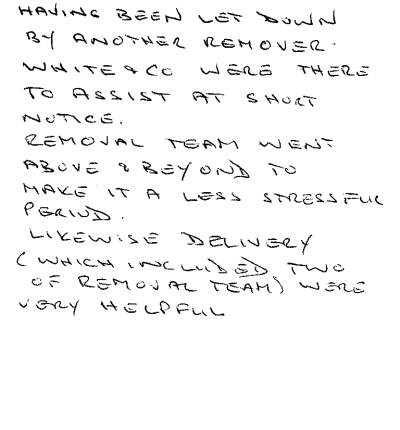 HAVING BEEN LET DOWN
BY ANOTHER REMOVER.
WHITE & CO WERE THERE
TO ASSIST AT SHORT
NOTICE.
REMOVAL TEAM WENT
ABOVE & BEYOND TO
MAKE IT A LESS STRESSFUL
PERIOD.
LIKEWISE DELIVERY
(WHICH INCLUDED TWO
OF REMOVAL TEAM) WERE
VERY HELPFUL